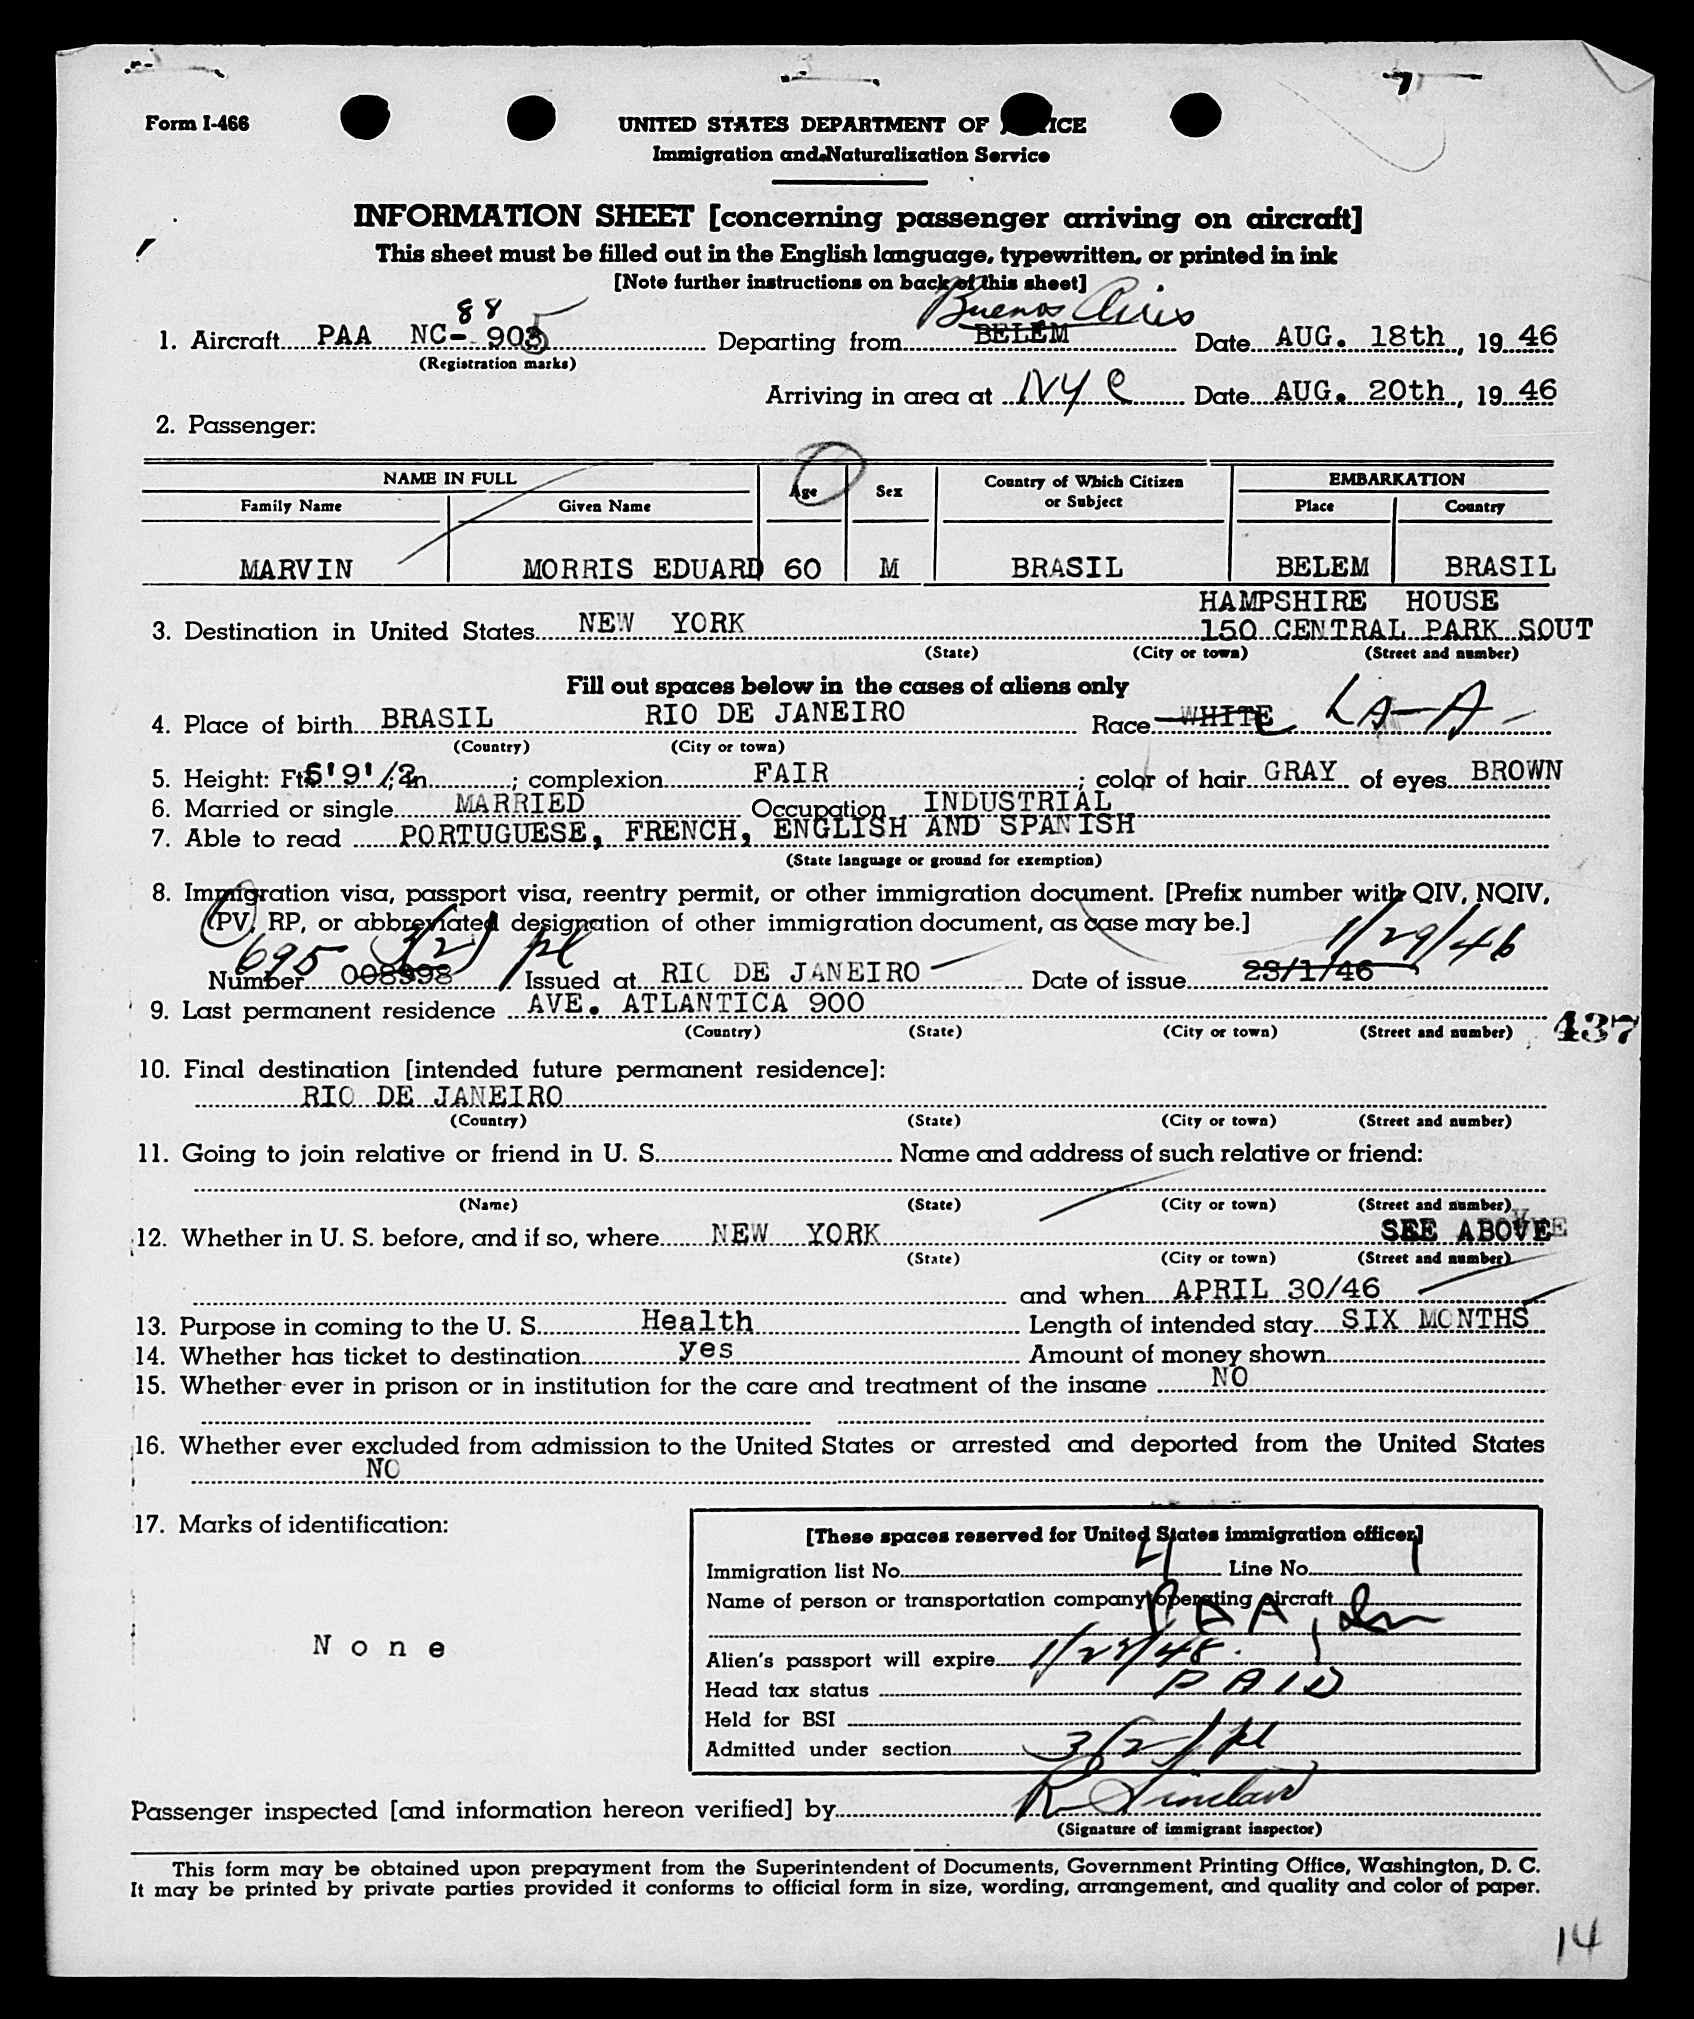 7
Form I-466
UNITED STATES DEPARTMENT OF JUSTICE
Immigration and Naturalization Service
INFORMATION SHEET [concerning passenger arriving on aircraft]
This sheet must be filled out in the English language, typewritten, or printed in ink
[Note further instructions on back of this sheet]
88 Buenos Aires
1. Aircraft PAA NC- 905 Departing from BELEM Date AUG. 18th, 19 46
(Registration marks)
Arriving in area at NYC Date AUG. 20th, 19 46
2. Passenger:
NAME IN FULL Age Sex Country of Which Citizen or Subject EMBARKATION
Family Name Given Name Place Country
MARVIN MORRIS EDUARD 60 M BRASIL BELEM BRASIL
HAMPSHIRE HOUSE
3. Destination in United States NEW YORK 150 CENTRAL PARK SOUT
(State) (City or town) (Street and number)
Fill out spaces below in the cases of aliens only
4. Place of birth BRASIL RIO DE JANEIRO Race WHITE LA-A-
(Country) (City or town)
5. Height: Ft. 5'9'1/2 in. ; complexion FAIR ; color of hair GRAY of eyes BROWN
6. Married or single MARRIED Occupation INDUSTRIAL
7. Able to read PORTUGUESE, FRENCH, ENGLISH AND SPANISH
(State language or ground for exemption)
8. Immigration visa, passport visa, reentry permit, or other immigration document. [Prefix number with QIV, NQIV,
PV, RP, or abbreviated designation of other immigration document, as case may be.]
695 3(2) pl 1/29/46
Number 008998 Issued at RIO DE JANEIRO Date of issue 28/1/46
9. Last permanent residence AVE. ATLANTICA 900
(Country) (State) (City or town) (Street and number) 437
10. Final destination [intended future permanent residence]:
RIO DE JANEIRO
(Country) (State) (City or town) (Street and number)
11. Going to join relative or friend in U. S. Name and address of such relative or friend:
(Name) (State) (City or town) (Street and number)
12. Whether in U. S. before, and if so, where NEW YORK SEE ABOVE
(State) (City or town) (Street and number)
and when APRIL 30/46
13. Purpose in coming to the U. S. Health Length of intended stay SIX MONTHS
14. Whether has ticket to destination yes Amount of money shown
15. Whether ever in prison or in institution for the care and treatment of the insane NO
16. Whether ever excluded from admission to the United States or arrested and deported from the United States
NO
17. Marks of identification:
None
[These spaces reserved for United States immigration officer]
Immigration list No. 4 Line No. 1
Name of person or transportation company operating aircraft
PAA, In
Alien's passport will expire 1/28/48.
Head tax status PAID
Held for BSI
Admitted under section 3(2) pl
Passenger inspected [and information hereon verified] by R Sinclair
(Signature of immigrant inspector)
This form may be obtained upon prepayment from the Superintendent of Documents, Government Printing Office, Washington, D. C.
It may be printed by private parties provided it conforms to official form in size, wording, arrangement, and quality and color of paper.
14